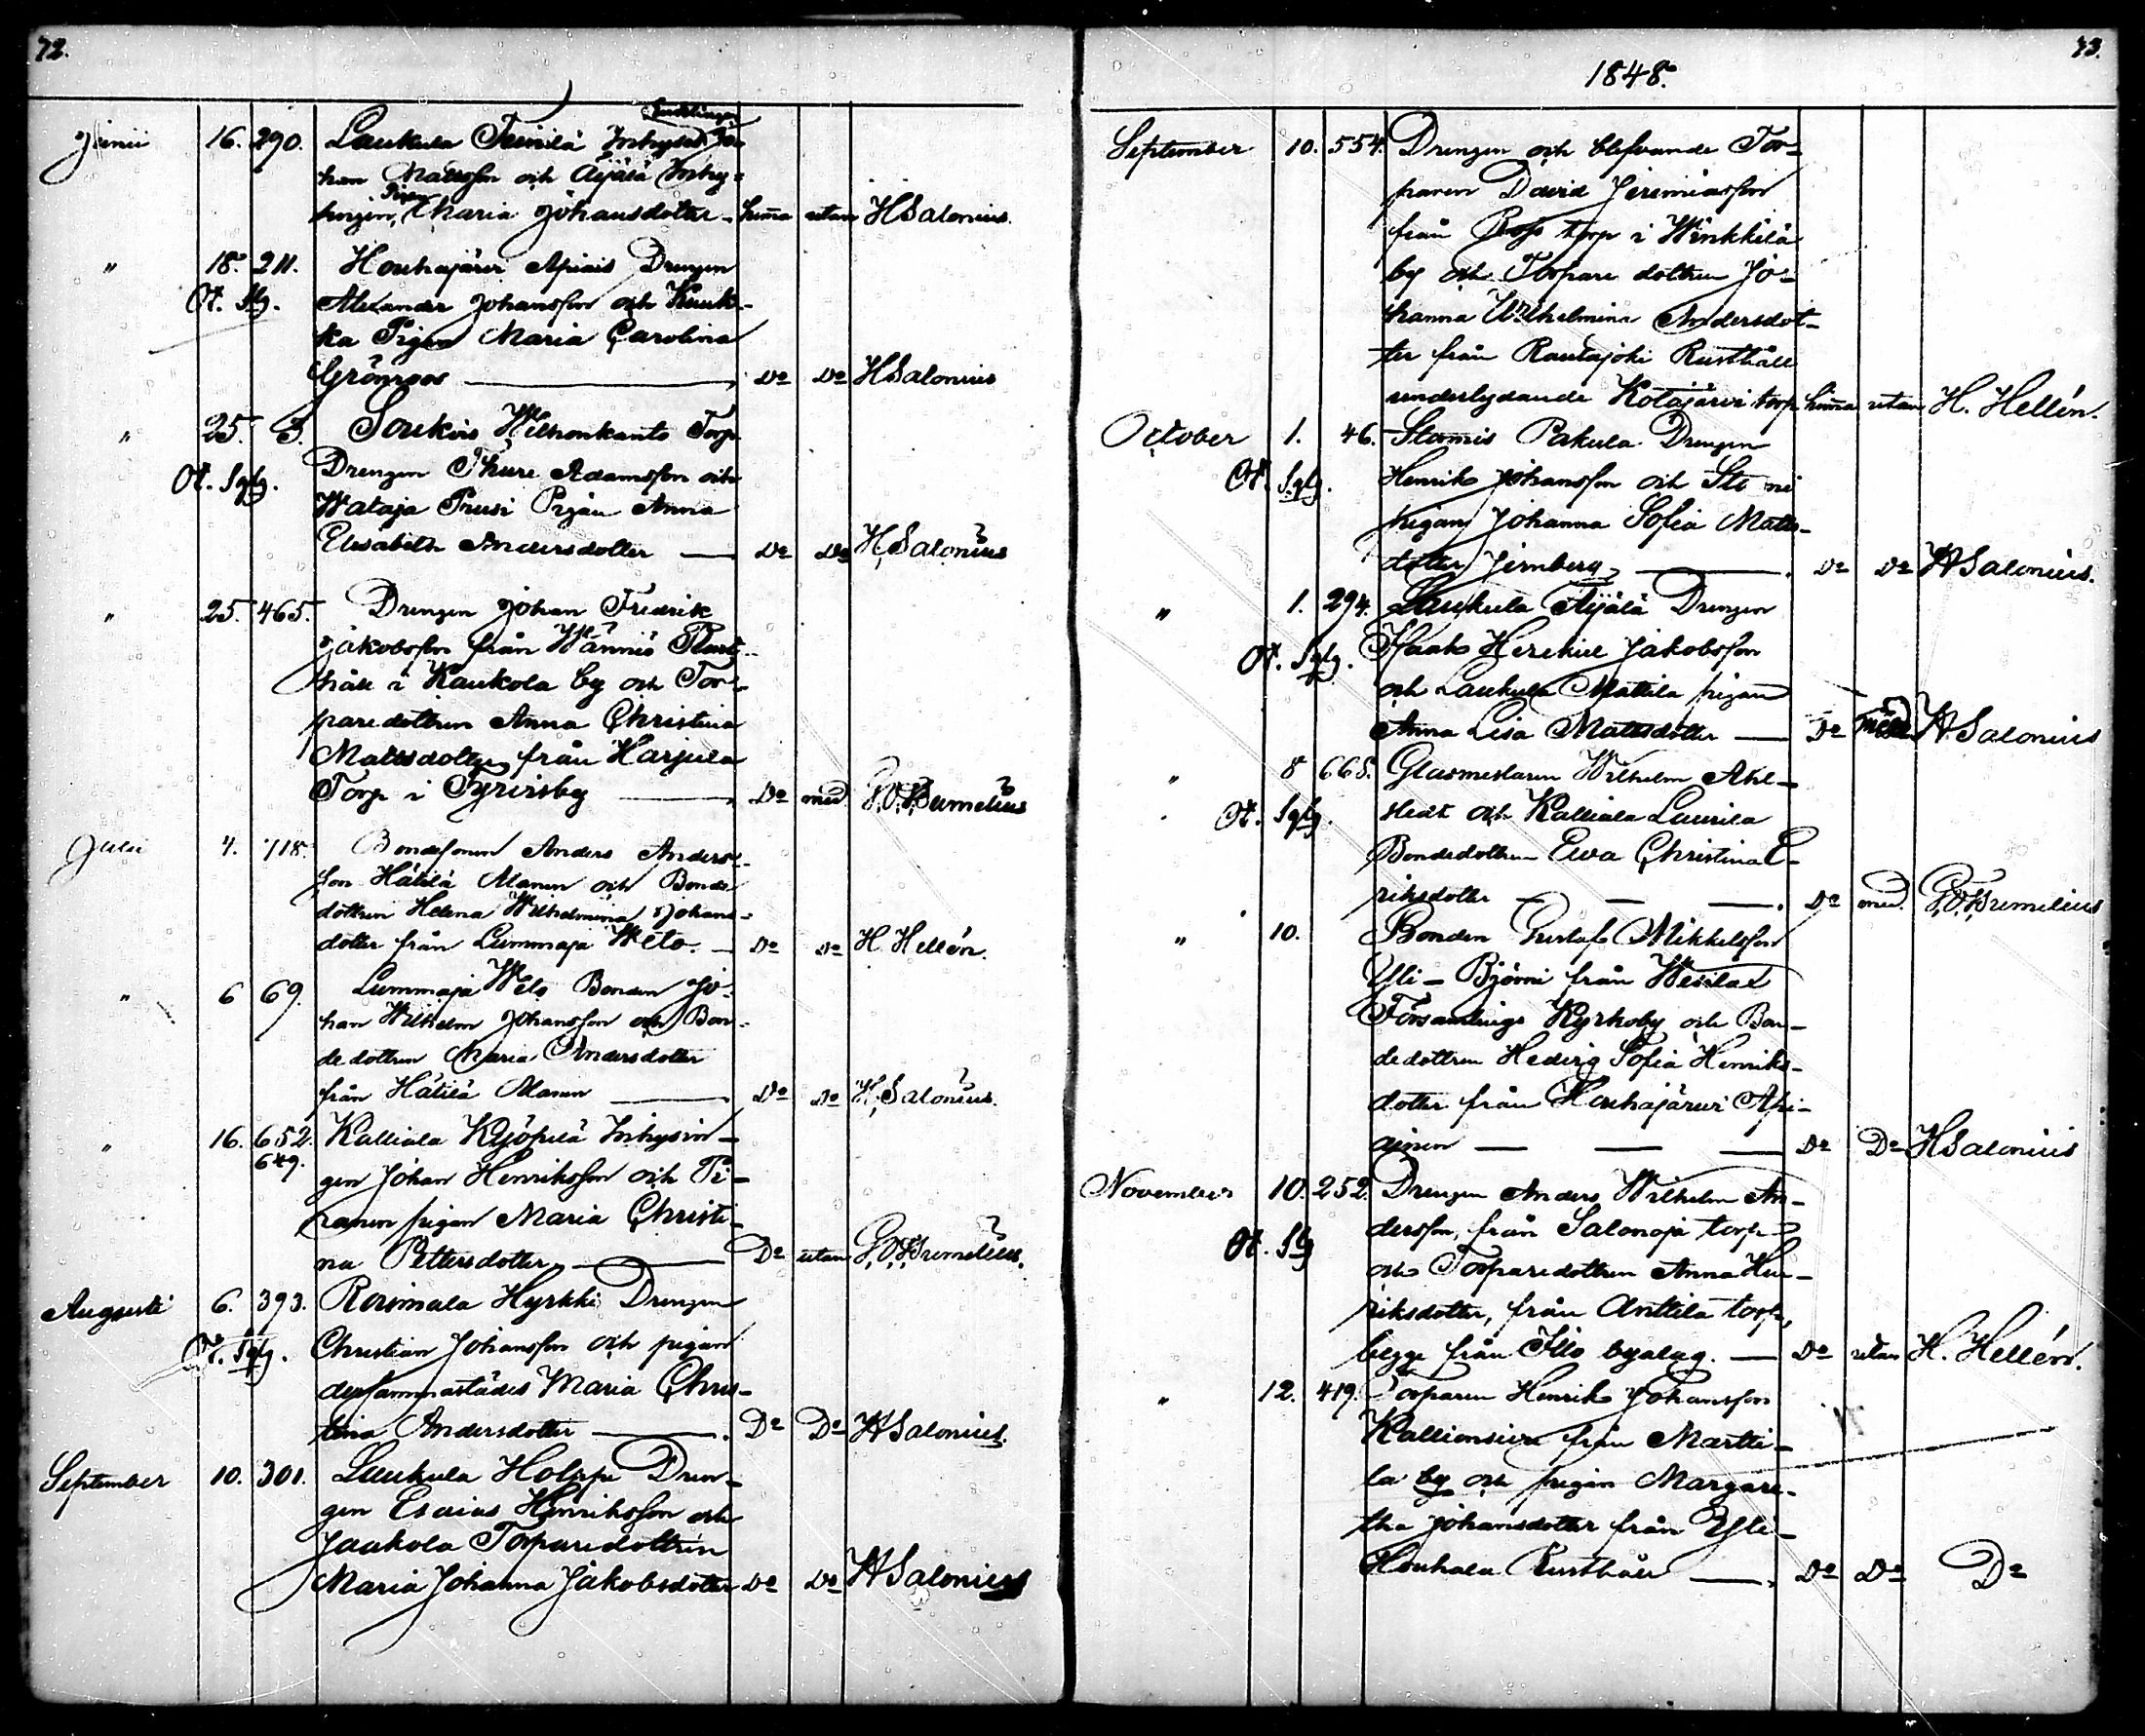 72.
Junii 16. 290. Laukula Inhyses Jo-
han Mattsson och Äijälä Inhy-
singen, Pigan Maria Johansdotter - hema utan HSalonius.
" 18. 211. Houhajärvi Apiais Drengen
Ot. Slg. Alexander Johansson och Kauk-
ka Pigan Maria Carolina
Grönroos — Do Do HSalonius
" 25. 3. Soukois Torp
Ot. Sglg. Drengen Thure Adamsson och
Wataja Prusi Pigan Anna
Elisabeth Andersdotter — Do Do HSalonius
" 25. 465. Drengen Johan Fredrik
Jakobsson från Wännis Rust-
håll i Kaukola by och Tor-
paredottren Anna Christina
Mattsdotter från Harjula
Torp i Tyrisby — Do med. G.O.Bumelius
Julii 4. 718. Bondesonen Anders Anders-
son Hätilä Manen och Bonde
dottren Helena Wilhelmina Johans-
dotter från Lummaja Weto. — Do Do H. Hellén.
" 6 69. Lummaja Weto Bonden Jo-
han Wilhelm Johansson och Bon-
dedottren Maria Andersdotter
från Hätilä Manen — Do Do HSalonius.
" 16. 652. Kalliala Kjöpilä Inhysin-
649. gen Johan Henriksson och Pi-
ranen pigan Maria Christi-
na Pettersdotter — Do utan G.O.Bumelius.
Augusti 6. 393. Roismala Hyrkki Drengen
Ot. Sglg. Christian Johansson och pigan
dersammastädes Maria Chris-
tina Andersdotter — Do Do HSalonius.
September 10. 301. Laukula Holppi Dren-
gen Esaias Henriksson och
Jaukola Torparedottren
Maria Johanna Jakobsdotter Do Do HSalonius
73.
1848.
September 10. 554. Drengen och blefvande Tor-
paren David Jeremiasson
från torp i Winkkilä
by och Torpare dottren Jo-
hanna Wilhelmina Andersdot-
ter från Rautajoki Rusthåll
underlydande Kotajärvi torp hema utan H. Hellén.
October 1. 46. Stormis Pakula Drengen
Ot. Sglg. Henrik Johansson och
pigan Johanna Sofia Matts-
dotter Jernberg — Do Do HSalonius.
" 1. 294. Laukula Äijälä Drengen
Ot. Sglg. Isaak Hesekiel Jakobsson
och Laukula Mattila pigan
Anna Lisa Mattsdotter — Do med HSalonius
" 8 665. Glasmestaren Wilhelm Ahl-
Ot. Sglg. stedt och Kalliala Laurila
Bondedottren Ewa Christina E-
riksdotter — — Do med. G.O.Bumelius
" 10. Bonden Gustaf Mikkelsson
Yli-Björni från Wesilax
Församlings Kyrkoby och Bon-
dedottren Hedvig Sofia Henriks-
dotter från Houhajärvi Api-
ainen — — — Do Do HSalonius
November 10. 252. Drengen Anders Wilhelm An-
dersson, från Salonoja torp
Ot. Slg och Torparedottren Anna Hen-
riksdotter, från Anttila torp,
begge från Illo byalag. — Do utan H. Hellén.
" 12. 419. Torparen Henrik Johansson
Kallionsivu från Martti-
la by och pigan Margare-
tha Johansdotter från Yli-
Houhala Rusthåll — Do Do Do